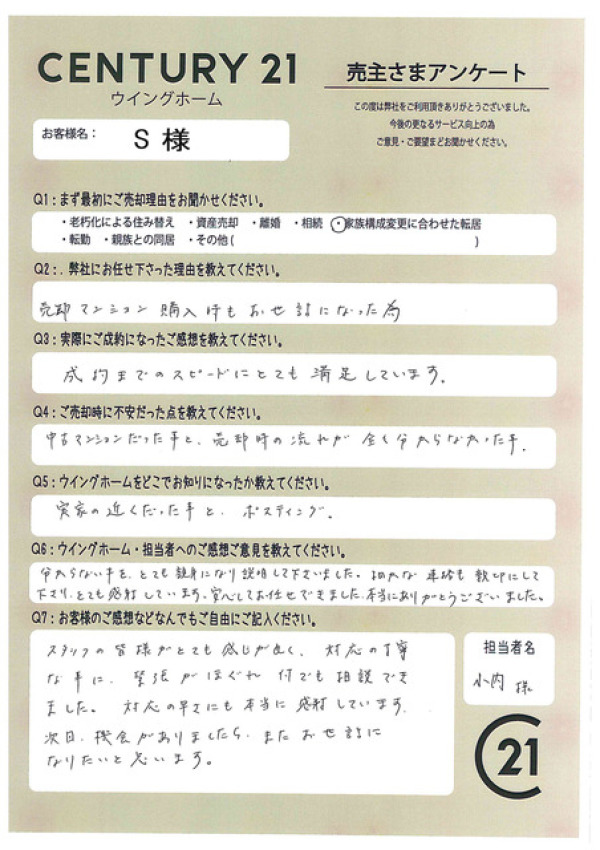 CENTURY 21
ウイングホーム
売主さまアンケート
この度は弊社をご利用頂きありがとうございました。
今後の更なるサービス向上の為
ご意見・ご要望まどお聞かせください。
お客様名：
S 様
Q1：まず最初にご売却理由をお聞かせください。
・老朽化による住み替え ・資産売却 ・離婚 ・相続 ・家族構成変更に合わせた転居
・転勤 ・親族との同居 ・その他 ( )
Q2：. 弊社にお任せ下さった理由を教えてください。
売却マンション購入時もお世話になった為
Q3：実際にご成約になったご感想を教えてください。
成約までのスピードにとても満足しています。
Q4：ご売却時に不安だった点を教えてください。
中古マンションだった事と、売却時の流れが全く分からなかった事。
Q5：ウイングホームをどこでお知りになったか教えてください。
実家の近くだった事と、ポスティング。
Q6：ウイングホーム・担当者へのご感想ご意見を教えてください。
分からない事を、とても親身になり説明して下さいました。細かな連絡も親切にして
下さり、とても感謝しています。安心してお任せできました。本当にありがとうございました。
Q7：お客様のご感想などなんでもご自由にご記入ください。
スタッフの皆様がとても感じが良く、対応の丁寧
な事に、緊張がほぐれ何でも相談でき
ました。対応の早さにも本当に感謝しています。
次回、機会がありましたら、またお世話に
なりたいと思います。
担当者名
小内 様
21